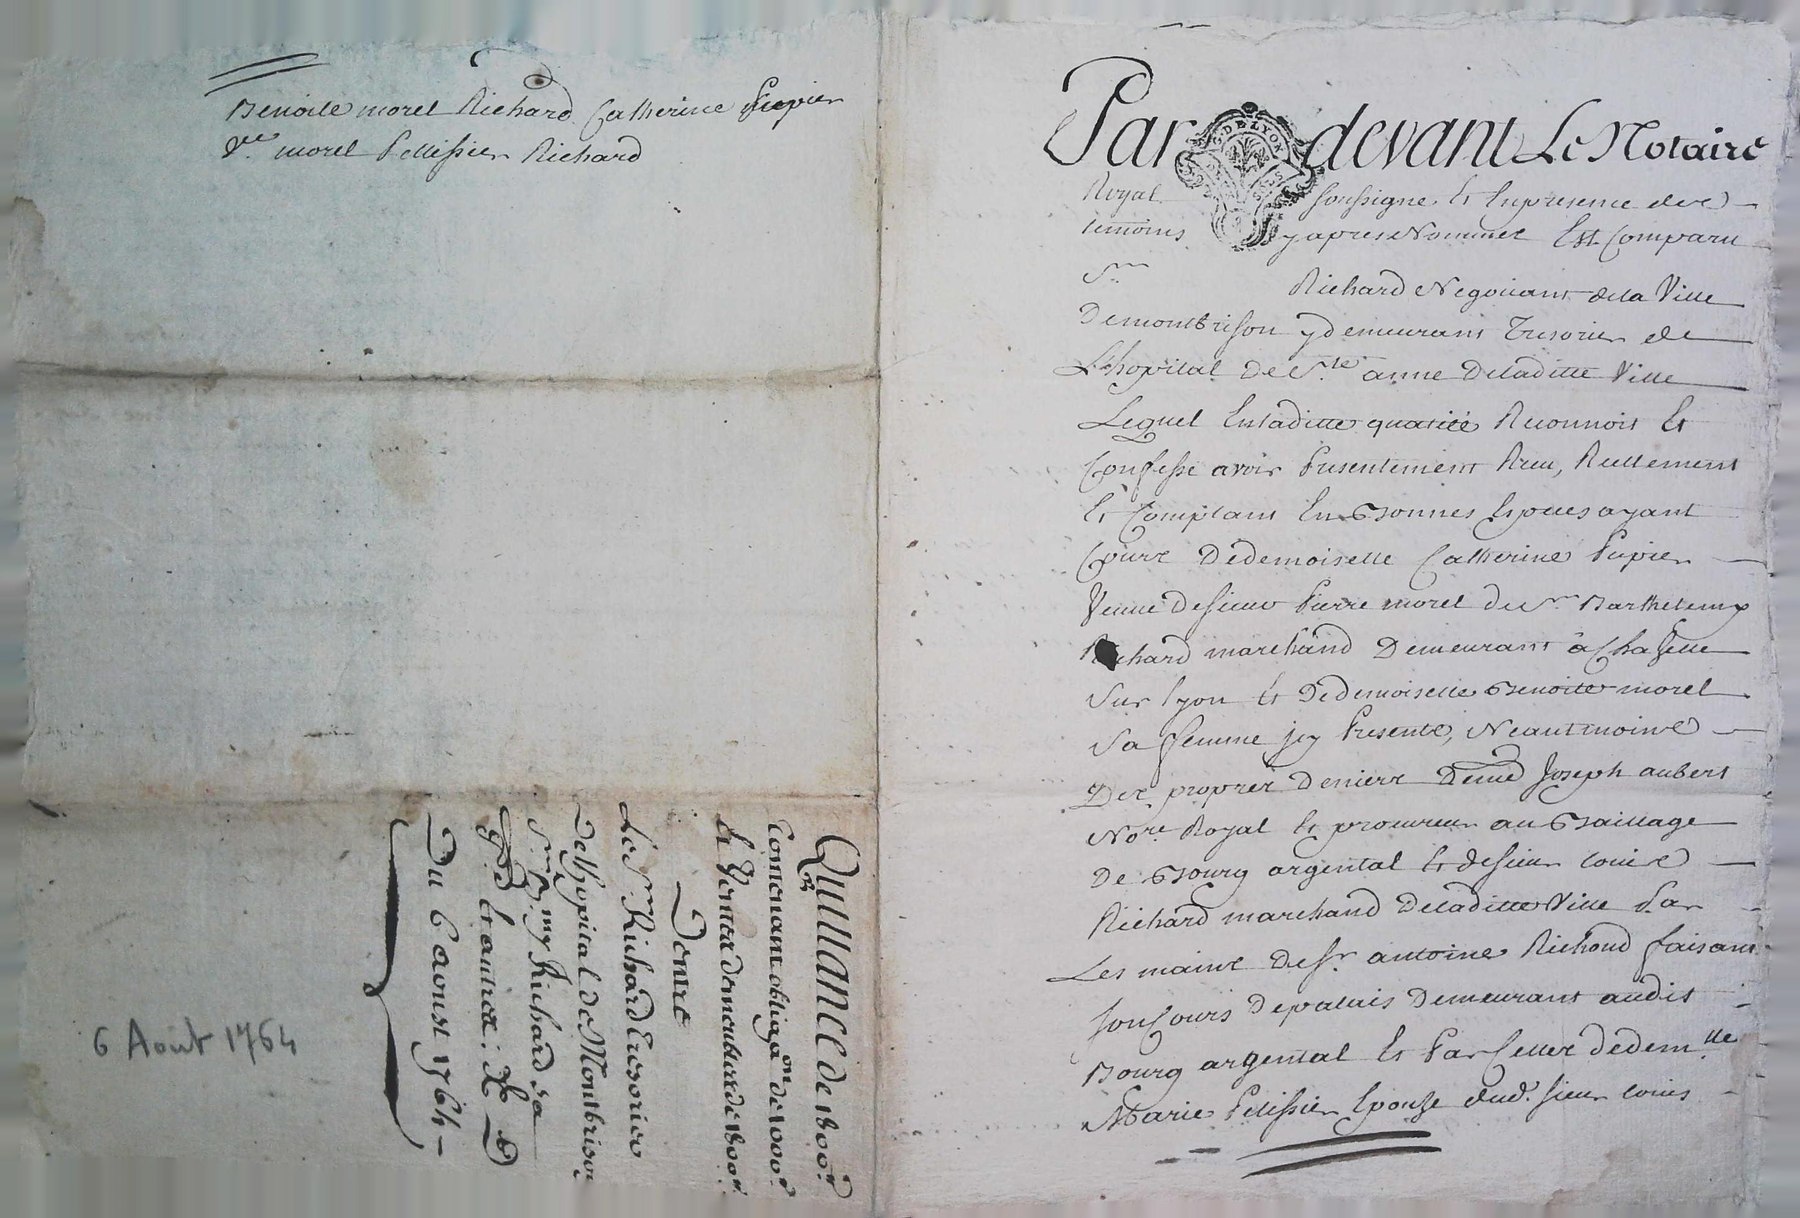 Benoite morel Richard Catherine pupier
Ve. morel Pellissier Richard
Quittance de 1800#
Contenant obliga.on de 1000#
Et Ventte de meubles de 1800#
Dentre
Le Sr. Richard Tresorier
De lhopital de Montbrison
my Richard sa
et autres
Du 6 aoust 1764
6 Août 1764
Par devant Le Notaire
G. DE LYON
Royal soussigné Et En presence des
temoins y apres Nommes Est Comparu
Sr. Richard Negotiant de la Ville
De montbrison y demeurant Tresorier de
L'hopital De Ste. anne De laditte Ville
Lequel En laditte qualité Reconnoit Et
Confesse avoir Presentement Receu, Reellement
Et Comptant En Bonnes Especes ayant
Cours De demoiselle Catherine Pupier
Veuve de sieur Pierre morel de Sr. Barthelemy
Richard marchand Demeurant à Chaselle
Sur Lyon Et De demoiselle Benoite morel
Sa femme jcy Presente, Neantmoins
Des propres Deniers De me. Joseph aubert
Nore. Royal Et procureur au Baillage
De Bourg argental Et de sieur Louis
Richard marchand De laditte Ville Par
Les mains de sr. antoine Richond faisant
son Cours de palais Demeurant audit
Bourg argental Et Par Celles de demlle.
Marie Pelissier Epouse dud. sieur Louis